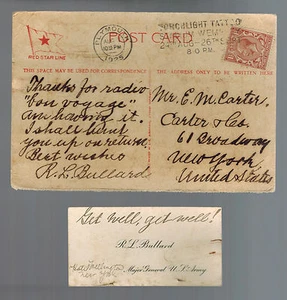 RED STAR LINE
PLYMOUTH
1925
TORCHLIGHT TATTOO
WEM
AUG - 26TH S
8.0 PM.
POST CARD
THIS SPACE MAY BE USED FOR CORRESPONDENCE
THE ADDRESS ONLY TO BE WRITTEN HERE
Thanks for radio
"bon voyage"
am having it.
I shall hunt
you up on return.
Best wishes
R. L. Bullard
Mr. E. M. Carter.
Carter & Co.
61 Broadway
New York,
United States
Get well, get well!
R. L. Bullard
Major General U. S. Army